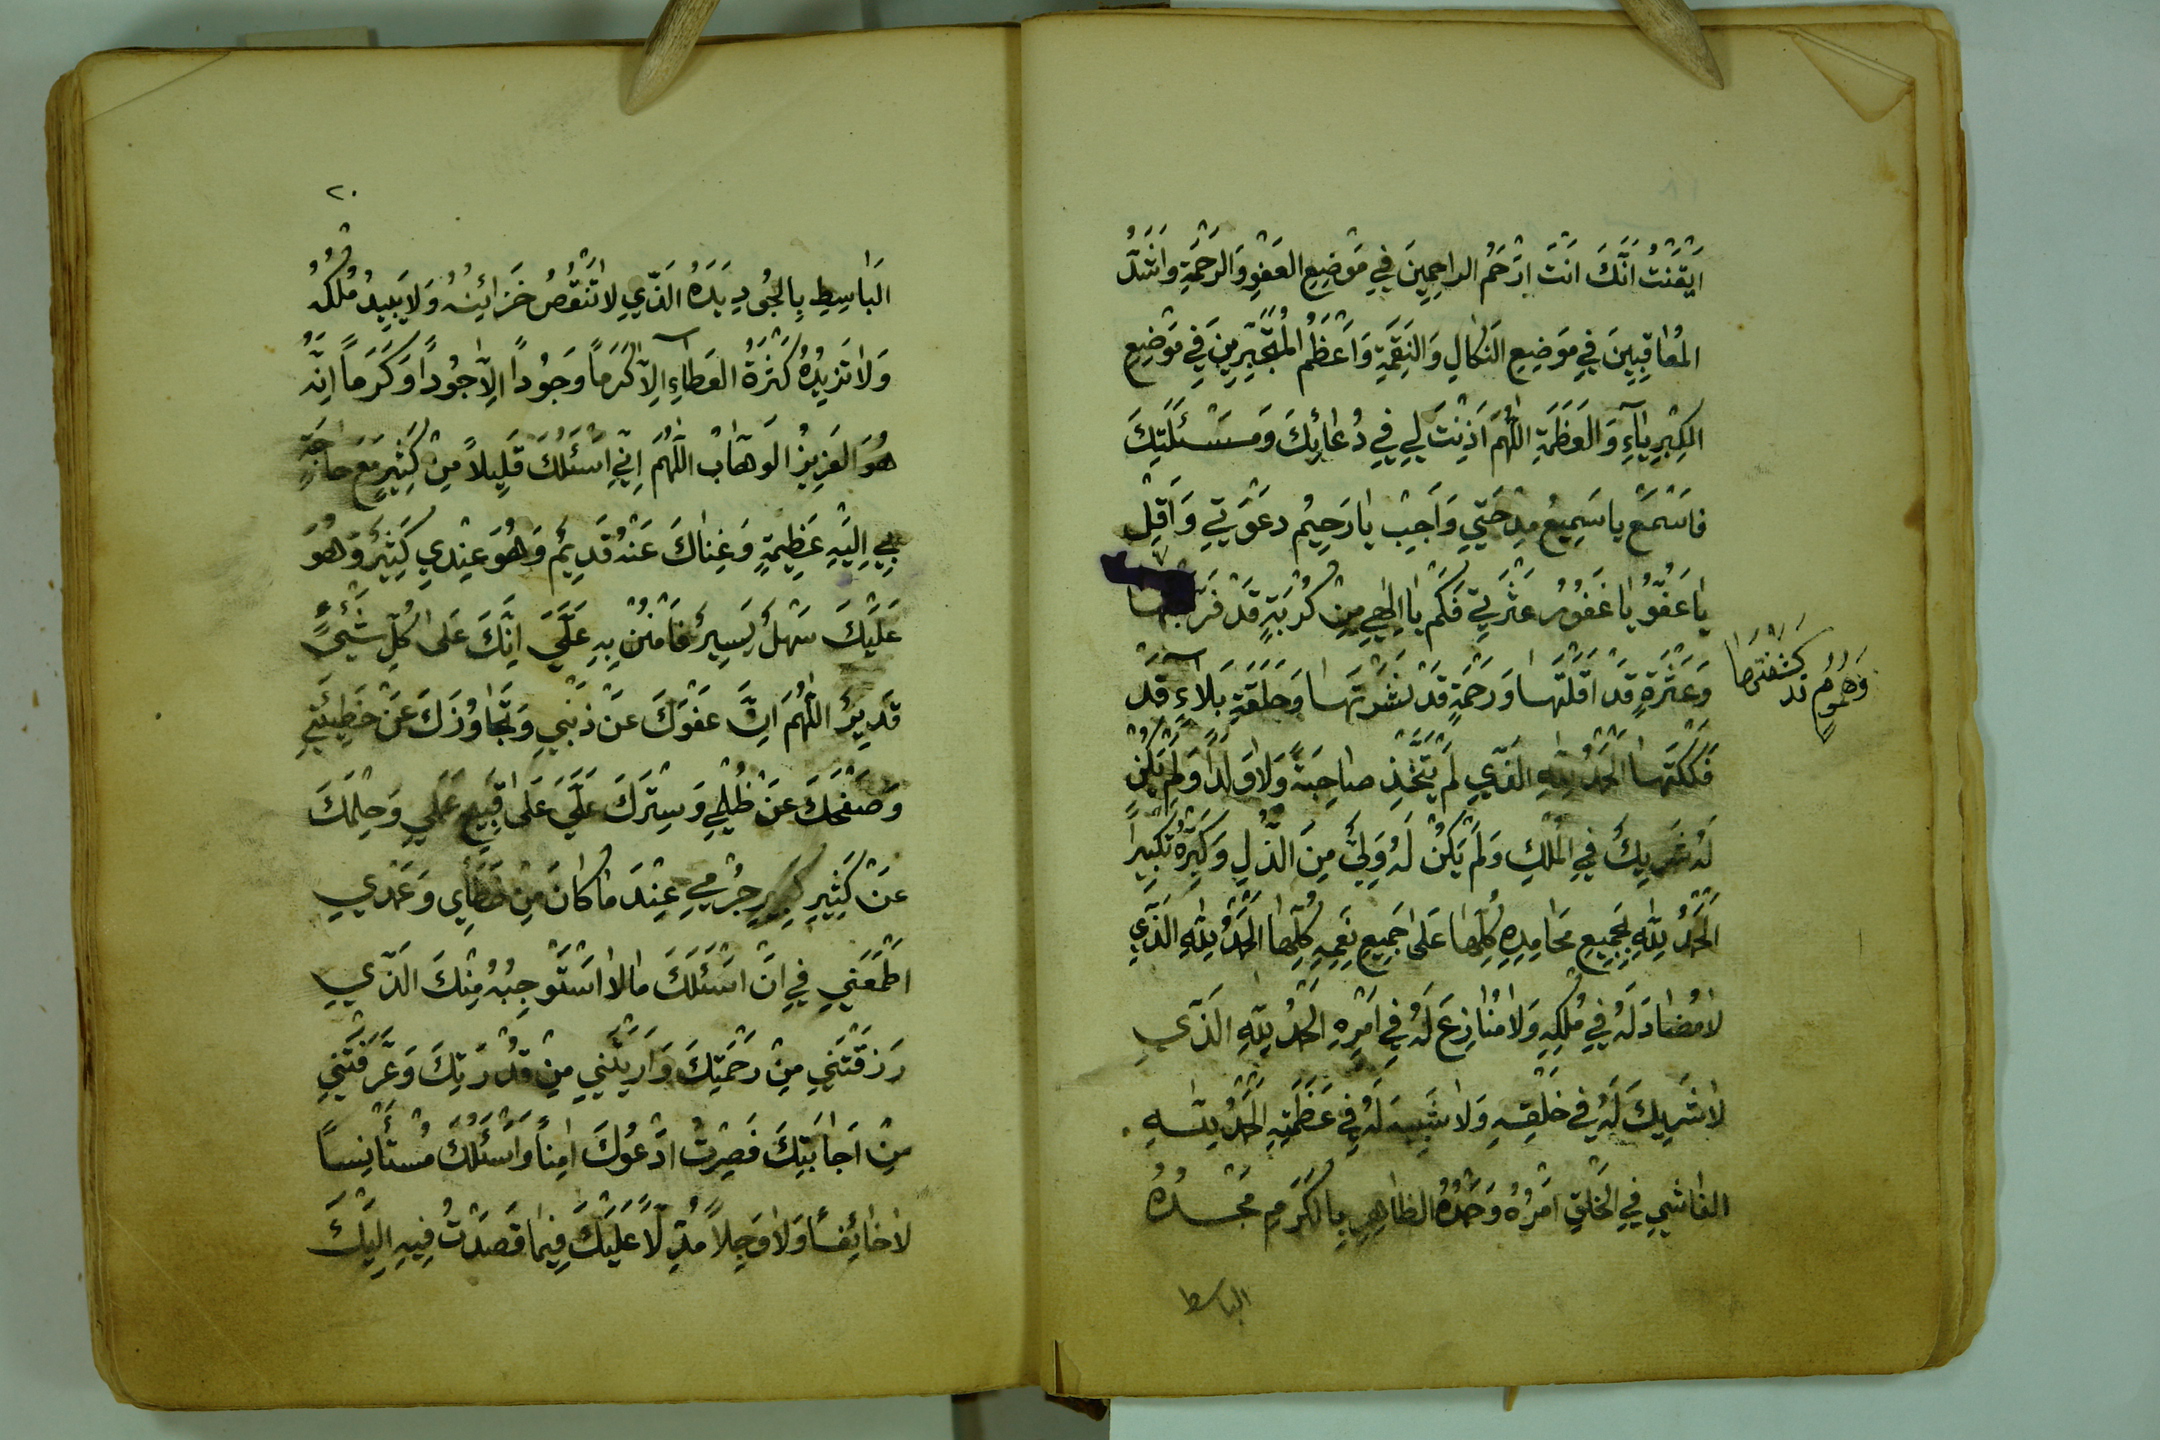 اَيْقَنْتُ اَنَّكَ اَنْتَ اَرْحَمُ الراحِمِينَ فِي مَوْضِعِ العَفْوِ وَالرَحْمَةِ وَاَشَدُّ
المُعاقِبِينَ فِي مَوْضِعِ النَكالِ وَالنَقِمَةِ وَاَعْظَمُ المُتَجَبِّرِينَ فِي مَوْضِعِ
الكِبْرِياۤءِ وَالعَظَمَةِ اللّٰهُمَّ اَذِنْتَ لِي فِي دُعائِكَ وَمَسْئَلَتِكَ
فَاسْمَعْ يا سَمِيعُ مِدْحَتِي وَاَجِبْ يا رَحِيمُ دَعْوَتِي وَاَقِلْ
يا عَفُوُّ يا غَفُورُ عَثْرَتِي فَكَمْ يا اِلٰهِي مِنْ كُرْبَةٍ قَدْ فَرَّجْتَها
وَهُمُومٍ قَدْ كَشَفْتَها
وَعَثْرَةٍ قَدْ اَقَلْتَها وَرَحْمَةٍ قَدْ نَشَرْتَها وَحَلْقَةِ بَلاۤءٍ قَدْ
فَكَكْتَها الْحَمْدُ لِلّٰهِ الَّذِي لَمْ يَتَّخِذْ صاحِبَةً وَلا وَلَداً وَلَمْ يَكُنْ
لَهُ شَرِيكٌ فِي المُلْكِ وَلَمْ يَكُنْ لَهُ وَلِيٌّ مِنَ الذُّلِ وَكَبِّرْهُ تَكْبِيراً
الْحَمْدُ لِلّٰهِ بِجَمِيعِ مَحامِدِهِ كُلِّها عَلٰى جَمِيعِ نِعَمِهِ كُلِّها الْحَمْدُ لِلّٰهِ الَّذِي
لا مُضادَّ لَهُ فِي مُلْكِهِ وَلا مُنازِعَ لَهُ فِي اَمْرِهِ الْحَمْدُ لِلّٰهِ الَّذِي
لا شَرِيكَ لَهُ فِي خَلْقِهِ وَلا شَبِيهَ لَهُ فِي عَظَمَتِهِ الْحَمْدُ لِلّٰهِ
الفاشِي فِي الخَلْقِ اَمْرُهُ وَحَمْدُهُ الظاهِرِ بِالكَرَمِ مَجْدُهُ
الباسط
٢٠
الْباسِطِ بِالجُودِ يَدَهُ الَّذِي لا تَنْقُصُ خَزائِنُهُ وَلا يَبِيدُ مُلْكُهُ
وَلا تَزِيدُهُ كَثْرَةُ العَطاۤءِ اِلاّ كَرَماً وَجُوداً اِلاّ جُوداً وَكَرَماً اِنَّهُ
هُوَ العَزِيزُ الوَهّابُ اللّٰهُمَّ اِنِّي اَسْئَلُكَ قَلِيلاً مِنْ كَثِيرٍ مَعَ حاجَةٍ
بِي اِلَيْهِ عَظِيمَةٍ وَغِناكَ عَنْهُ قَدِيمٌ وَهُوَ عِنْدِي كَثِيرٌ وَهُوَ
عَلَيْكَ سَهْلٌ يَسِيرٌ فَامْنُنْ بِهِ عَلَيَّ اِنَّكَ عَلٰى كُلِّ شَيْءٍ
قَدِيرٌ اللّٰهُمَّ اِنَّ عَفْوَكَ عَنْ ذَنْبِي وَتَجاوُزَكَ عَنْ خَطِيئَتِي
وَصَفْحَكَ عَنْ ظُلْمِي وَسِتْرَكَ عَلَيَّ عَلٰى قَبِيحِ عَمَلِي وَحِلْمَكَ
عَنْ كَثِيرِ جُرْمِي عِنْدَ ما كانَ مِنْ خَطَأِي وَعَمْدِي
اَطْمَعَنِي فِي اَنْ اَسْئَلَكَ ما لا اَسْتَوْجِبُهُ مِنْكَ الَّذِي
رَزَقْتَنِي مِنْ رَحْمَتِكَ وَاَرَيْتَنِي مِنْ قُدْرَتِكَ وَعَرَّفْتَنِي
مِنْ اَجابَتِكَ فَصِرْتُ اَدْعُوكَ امِناً وَاَسْئَلُكَ مُسْتَأْنِساً
لا خائِفاً وَلا وَجِلاً مُدِلاًّ عَلَيْكَ فِيما قَصَدْتُ فِيهِ اِلَيْكَ